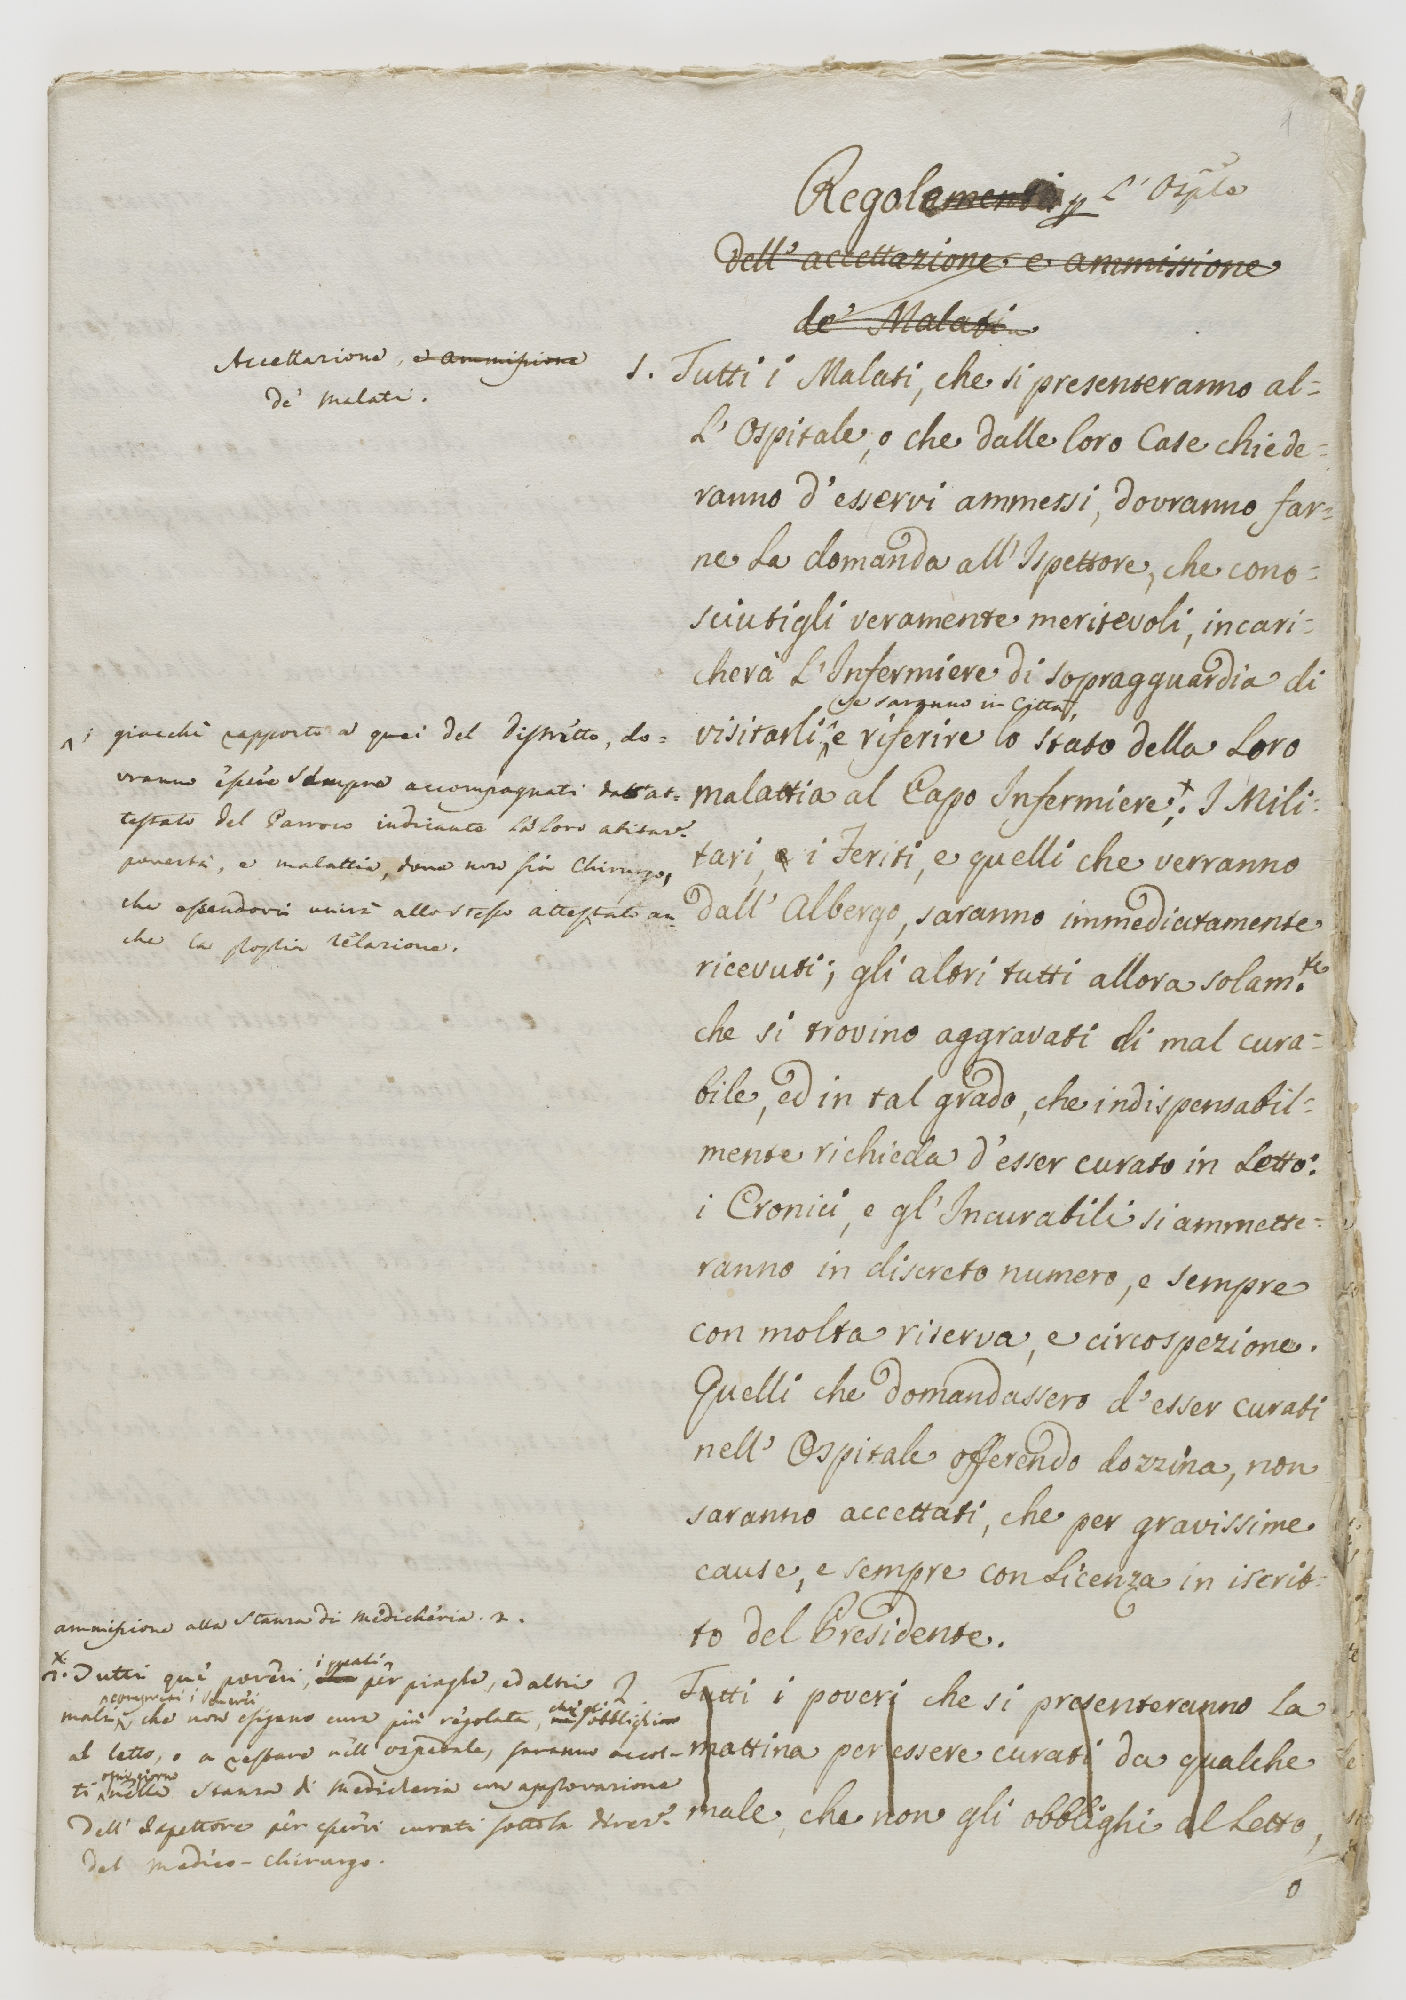 1
Regolamenti p L' Osple
dell' accettazione e ammissione
de' Malati
Accettazione, e ammissione
de' Malati.
1. Tutti i Malati, che si presenteranno al=
L' Ospitale, o che dalle loro Case chiede=
ranno d'esservi ammessi, dovranno far=
ne La domanda all' Ispettore, che cono=
sciutigli veramente meritevoli, incari=
cherà L' Infermiere di sopragguardia di
se saranno in Città,
visitarli, e riferire lo stato della Loro
malattia al Capo Infermiere: I Mili=
tari, e i Feriti, e quelli che verranno
dall' Albergo, saranno immediatamente
ricevuti; gli altri tutti allora solam.te
che si trovino aggravati di mal cura=
bile, ed in tal grado, che indispensabil=
mente richieda d'esser curato in Letto:
i Cronici, e gl' Incurabili si ammette=
ranno in discreto numero, e sempre
con molta riserva, e circospezione.
Quelli che domandassero d'esser curati
nell' Ospitale offerendo dozzina, non
saranno accettati, che per gravissime
cause, e sempre con Licenza in iscrit=
to del Presidente.
Tutti i poveri che si presenteranno La
mattina per essere curati da qualche
male, che non gli obblighi al Letto,
o
giacchè rapporto a quei del distretto, do=
vranno essere sempre accompagnati dall'at=
testato del Parroco indicante la loro
povertà, e malattia, dove non sia Chirurgo,
che essendovi unirà allo stesso attestato an
che la relazione.
ammissione alla stanza di medicheria. 2.
2. Tutti quei poveri, i quali per piaghe, ed altri
compresi i
mali, che non esigano cura più regolata, obblighi
al letto, o a restare nell' ospedale, saranno accol=
ti ogni giorno nella stanza di medicheria con approvazione
Dell' Ispettore per essere curati sotto la direz.e
del medico-chirurgo.